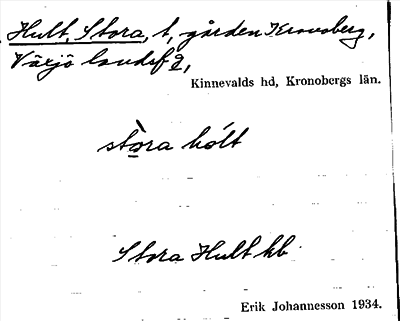 Hult, Stora, t, gården Kronoberg,
Växjö landsf 2,
Kinnevalds hd, Kronobergs län.
stòra hólt
Stora Hult kb
Erik Johannesson 1934.